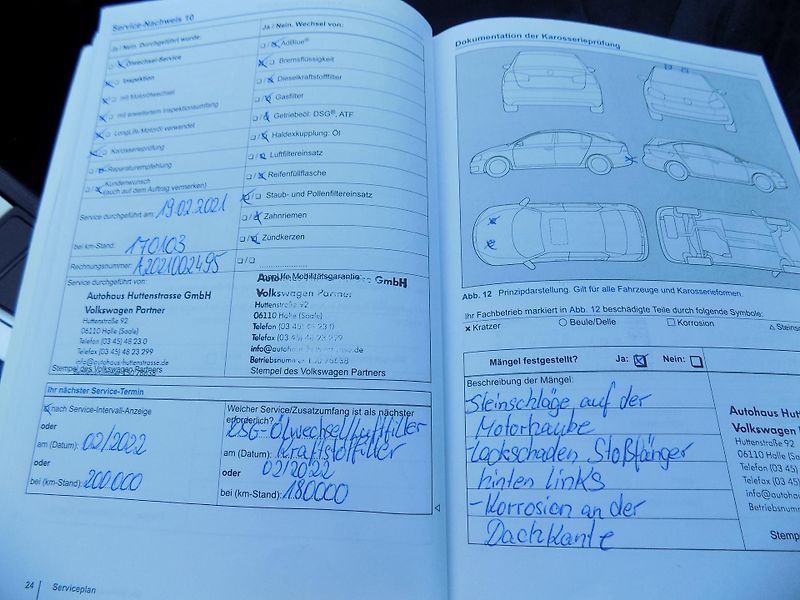 Service-Nachweis 10
Ja / Nein. Durchgeführt wurde:
Ölwechsel-Service
Inspektion
mit Motorölwechsel
mit erweitertem Inspektionsumfang
LongLife Motoröl verwendet
Karosserieprüfung
Reparaturempfehlung
Kundenwunsch
(auch auf dem Auftrag vermerken)
Service durchgeführt am: 19.02.2021
bei km-Stand: 170103
Rechnungsnummer: A2021002495
Ja / Nein. Wechsel von:
AdBlue®
Bremsflüssigkeit
Dieselkraftstofffilter
Gasfilter
Getriebeöl: DSG®, ATF
Haldexkupplung: Öl
Luftfiltereinsatz
Reifenfüllflasche
Staub- und Pollenfiltereinsatz
Zahnriemen
Zündkerzen
Service durchgeführt von:
Autohaus Huttenstrasse GmbH
Volkswagen Partner
Huttenstraße 92
06110 Halle (Saale)
Telefon (03 45) 48 23 0
Telefax (03 45) 48 23 299
info@autohaus-huttenstrasse.de
Stempel des Volkswagen Partners
LongLife Mobilitätsgarantie
GmbH
Volkswagen Partner
Huttenstraße 92
06110 Halle (Saale)
Telefon (03 45) 48 23 0
Telefax (03 45) 48 23 299
info@autohaus-huttenstrasse.de
Stempel des Volkswagen Partners
Ihr nächster Service-Termin
nach Service-Intervall-Anzeige
oder
am (Datum): 02/2022
oder
bei (km-Stand): 200.000
Welcher Service/Zusatzumfang ist als nächster
erforderlich?
Ölwechsel/Luftfilter
Kraftstoffilter
am (Datum): 02/2022
oder
bei (km-Stand): 180000
24 Serviceplan
Dokumentation der Karosserieprüfung
Abb. 12 Prinzipdarstellung. Gilt für alle Fahrzeuge und Karosserieformen.
Ihr Fachbetrieb markiert in Abb. 12 beschädigte Teile durch folgende Symbole:
x Kratzer
Beule/Delle
Korrosion
Mängel festgestellt? Ja: Nein:
Beschreibung der Mängel:
Steinschläge auf der
Motorhaube
-Lackschaden Stoßfänger
hinten links
-Korrosion an der
Dachkante
Autohaus Hutten
Volkswagen
Huttenstraße 92
06110 Halle (Sa
Telefon (03 45)
Telefax (03 45)
info@autohau
Betriebsnumm
Stemp